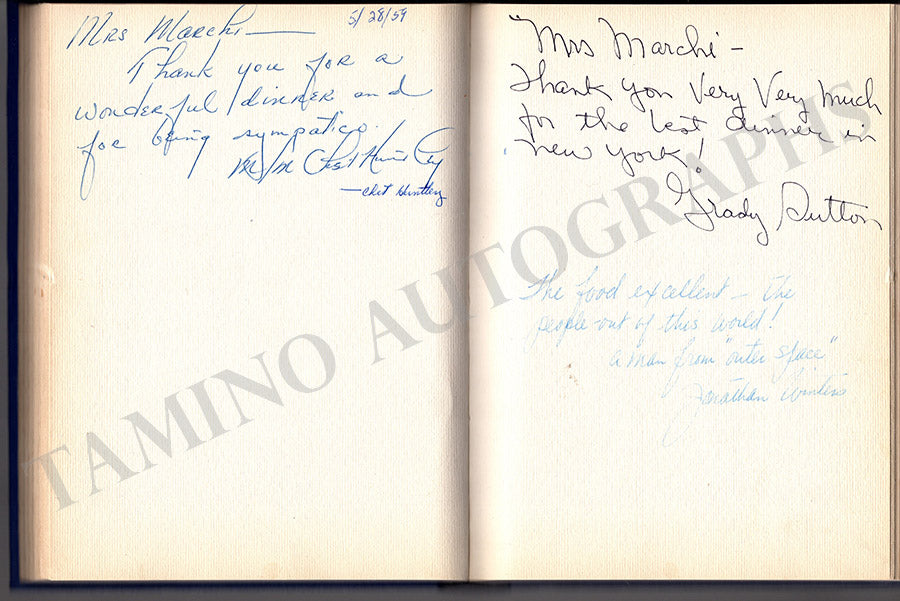 Mrs Marchi —
5/28/59
Thank you for a
wonderful dinner and
for being sympatico.
— Chet Huntley
Mrs Marchi —
Thank you Very Very Much
for the best dinner in
New York!
Grady Sutton
The food excellent — the
people out of this world!
a man from "outer space"
Jonathan Winters
TAMINO AUTOGRAPHS